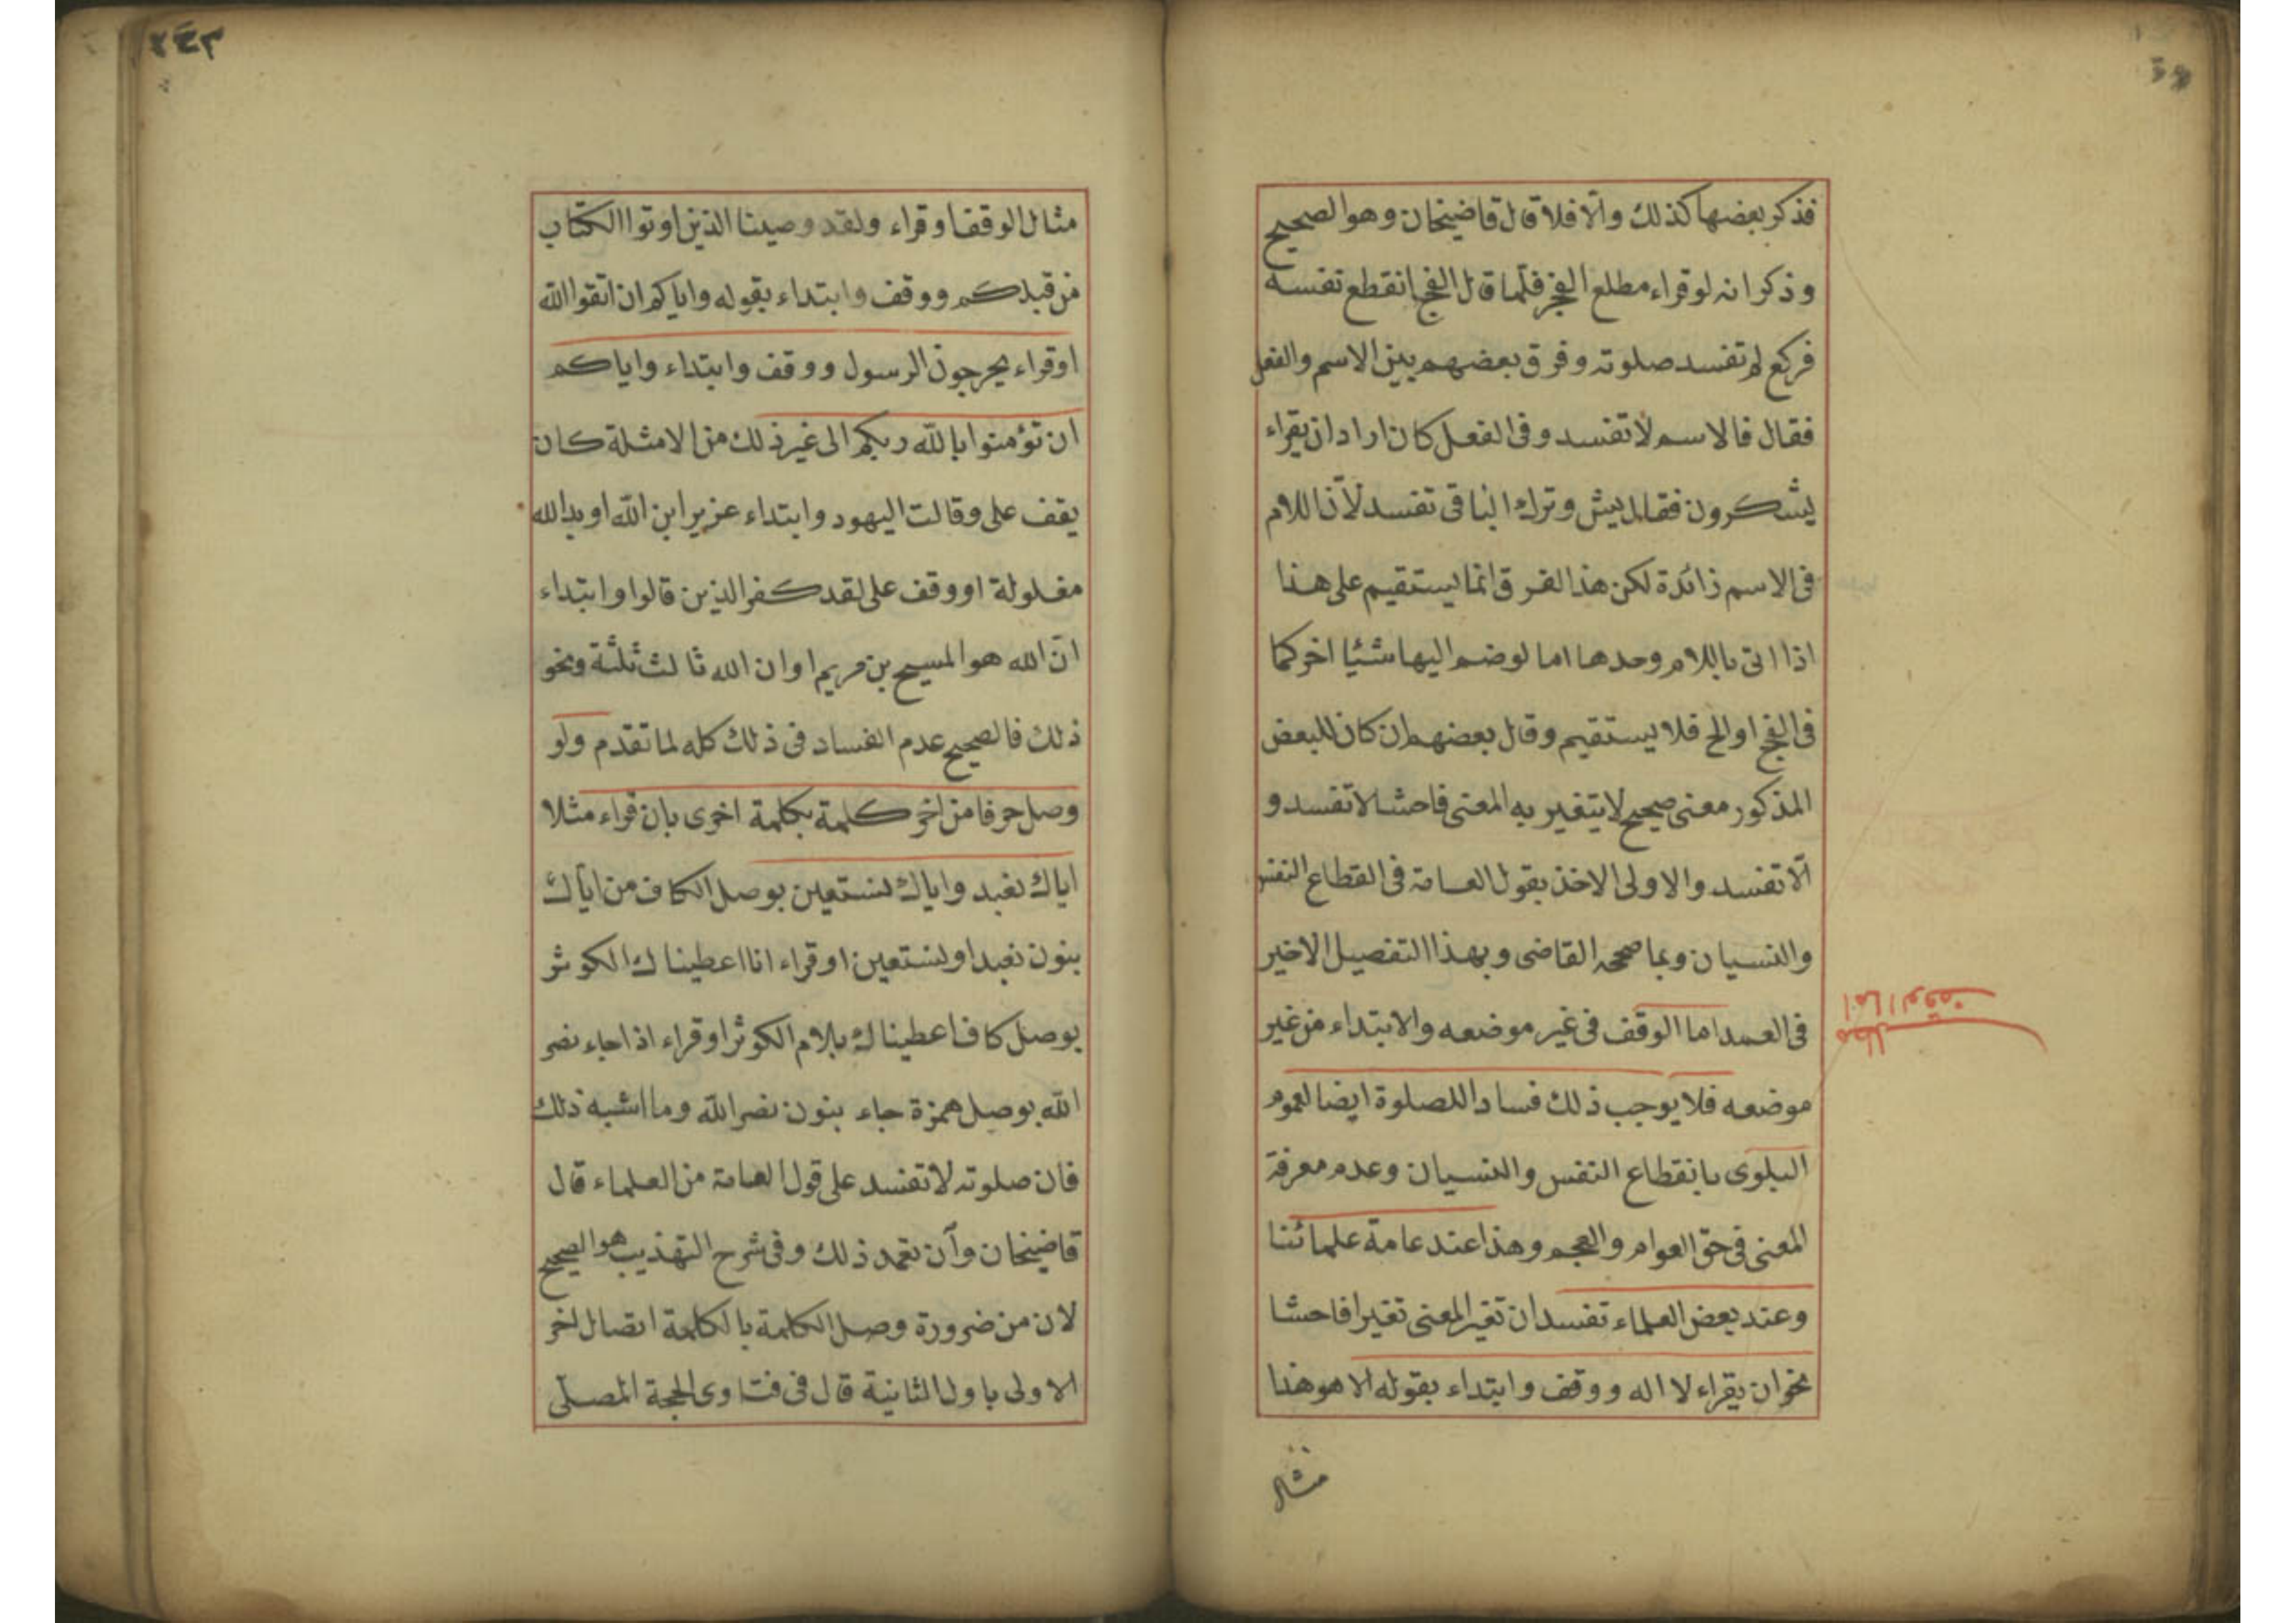 فذكر بعضها كذلك والّا فلا قال قاضيخان وهو الصحيح
وذكر انه لو قراء مطلع الفجر فلما قال الفج انقطع نفسه
فركع لم تفسد صلوته وفرق بعضهم بين الاسم والفعل
فقال فالاسم لا تفسد وفى الفعل كان اراد ان يقراء
يشكرون فقال يش وترك الباقى تفسد لأن اللام
فى الاسم زائدة لكن هذا الفرق انما يستقيم على هذا
اذا اتى باللام وحدها اما لو ضم اليها شئيا اخر كما
فى الفج او الح فلا يستقيم وقال بعضهم ان كان للبعض
المذكور معنى صحيح لا يتغير به المعنى فاحشا لا تفسد و
الّا تفسد والاولى الاخذ بقول العامة فى انقطاع النفس
والنسيان وبما صححه القاضى وبهذا التفصيل الاخير
فى العمد اما الوقف فى غير موضعه والابتداء من غير
موضعه فلا يوجب ذلك فسادا للصلوة ايضا لعموم
البلوى بانقطاع النفس والنسيان وعدم معرفة
المعنى فى حق العوام والعجم وهذا عند عامة علمائنا
وعند بعض العلماء تفسد ان تغير المعنى تغيرا فاحشا
نحو ان يقراء لا اله ووقف وابتداء بقوله الا هو هذا
مثال
اما الوقف
مطلب
مثال الوقف او قراء ولقد وصينا الذين اوتوا الكتاب
من قبلكم ووقف وابتداء بقوله واياكم ان اتقوا الله
او قراء يخرجون الرسول ووقف وابتداء واياكم
ان تؤمنوا بالله ربكم الى غير ذلك من الامثلة كان
يقف على وقالت اليهود وابتداء عزير ابن الله او يد الله
مغلولة او وقف على لقد كفر الذين قالوا وابتداء
انّ الله هو المسيح بن مريم او ان الله ثالث ثلثة ونحو
ذلك فالصحيح عدم الفساد فى ذلك كله لما تقدم ولو
وصل حرفا من اخر كلمة بكلمة اخرى بان قراء مثلا
اياك نعبد واياك نستعين بوصل الكاف من اياك
بنون نعبد او نستعين او قراء انا اعطيناك الكوثر
بوصل كاف اعطيناك بلام الكوثر او قراء اذا جاء نصر
الله بوصل همزة جاء بنون نصر الله وما اشبه ذلك
فان صلوته لا تفسد على قول العامة من العلماء قال
قاضيخان وآن تعمد ذلك وفى شرح التهذيب هو الصحيح
لان من ضرورة وصل الكلمة بالكلمة اتصال اخر
الاولى باول الثانية قال فى فتاوى الحجة المصلّى